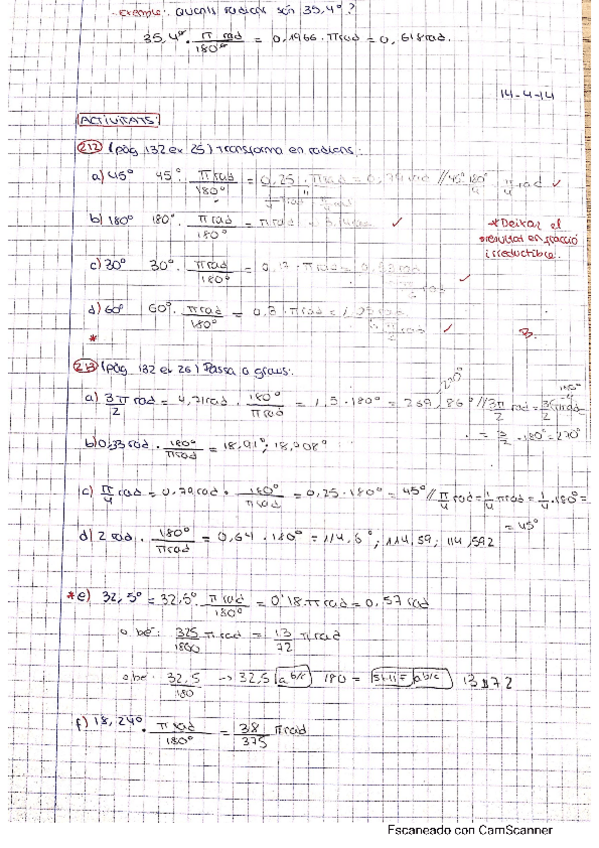 Exemple: Quants radians són 35,4°?
35,4° · π rad / 180° = 0,1966 · π rad = 0,618 rad.
14-4-14
ACTIVITATS:
212 (pàg 132 ex 25) Transforma en radians:
a) 45° 45° · π rad / 180° = 0,25 · π rad = rad // 45° 180° π/4 rad ✓
b) 180° 180° · π rad / 180° = π rad = ✓
*Deixar el
resultat en fracció
irreductible.
c) 30° 30° · π rad / 180° = 0,17 · π rad = rad ✓
d) 60° 60° · π rad / 180° = 0,3 · π rad = rad ✓
B.
*
213 (pàg 132 ex 26) Passa a graus:
a) 3π/2 rad = 4,71 rad · 180° / π rad = 1,5 · 180° = 269,86° // 3π/2 rad = 270°
= 3/2 · 180° = 270°
b) 0,33 rad · 180° / π rad = 18,91°; 18,908°
c) π/4 rad = 0,79 rad · 180° / π rad = 0,25 · 180° = 45° // π/4 rad = 1/4 π rad = 1/4 · 180° =
= 45°
d) 2 rad · 180° / π rad = 0,64 · 180° = 114,6°; 114,59; 114,592
*e) 32,5° = 32,5° · π rad / 180° = 0'18 · π rad = 0,57 rad
o bé: 325/1800 π rad = 13/72 π rad
o bé: 32,5/180 → 32,5 a b/c 180 = a b/c 13⅃72
f) 18,24° · π rad / 180° = 38/375 π rad
Escaneado con CamScanner